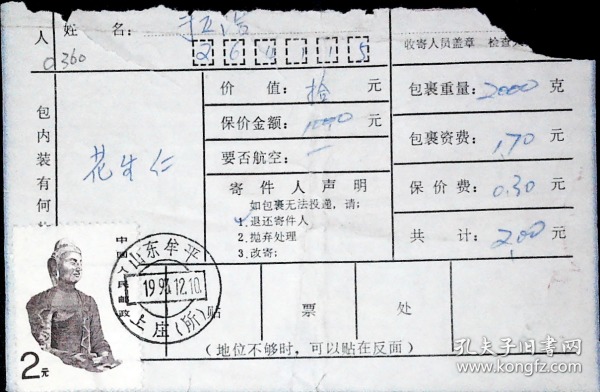 人 姓 名：
0360
264115
收寄人员盖章
价 值：拾 元
包裹重量：2000 克
保价金额：10.00 元
包裹资费：1.70 元
包内装有何
花生仁
要否航空：一
保 价 费：0.30 元
寄 件 人 声 明
如包裹无法投递，请；
1.退还寄件人
2.抛弃处理
3.改寄；
共 计：2.00 元
中国人民邮政
2元
山东牟平
12.10
上庄(所)
贴 票 处
（地位不够时，可以贴在反面）
孔夫子旧书网
www.kongfz.com